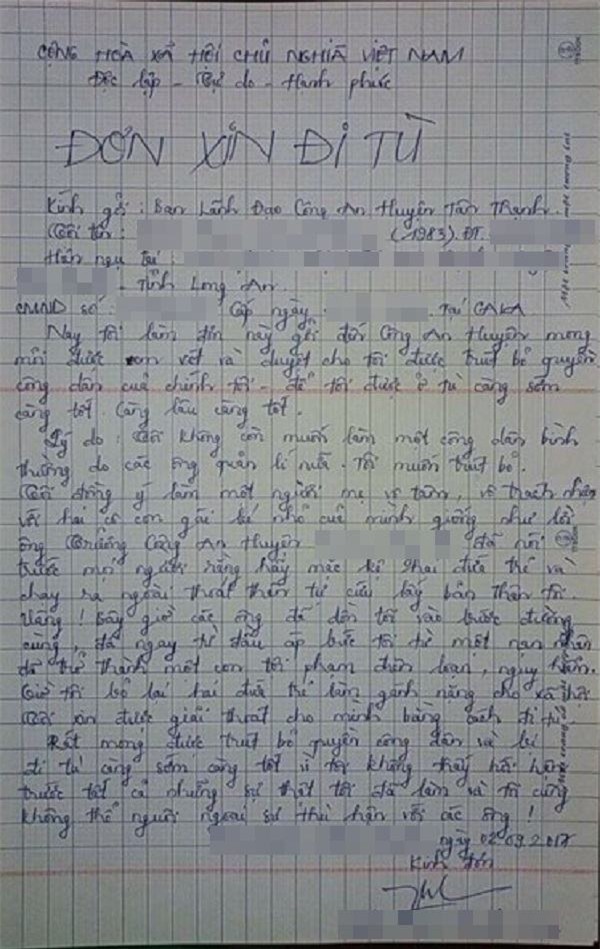 CỘNG HÒA XÃ HỘI CHỦ NGHĨA VIỆT NAM
Độc lập - Tự do - Hạnh phúc
ĐƠN XIN ĐI TÙ
Kính gởi : Ban Lãnh Đạo Công An Huyện Tân Thạnh.
Tôi tên : (1983). ĐT.
Hiện ngụ tại :
- Tỉnh Long An.
CMND số : Cấp ngày . Tại CALA
Nay tôi làm đơn này gởi đến Công An Huyện mong
mỏi được xem xét và duyệt cho tôi được truất bỏ quyền
công dân của chính tôi - để tôi được ở tù càng sớm
càng tốt. Càng lâu càng tốt.
Lý do : Tôi không còn muốn làm một công dân bình
thường do các ông quản lí nữa. Tôi muốn truất bỏ.
Tôi đồng ý làm một người mẹ vô tâm, vô trách nhiệm
với hai cô con gái bé nhỏ của mình giống như lời
ông Trưởng Công An Huyện đã nói
trước mọi người rằng hãy mặc kệ 2 hai đứa trẻ và
chạy ra ngoài thoát thân tự cứu lấy bản thân tôi.
Vâng ! Bây giờ các ông đã dồn tôi vào bước đường
cùng, đã ngay từ đầu ép bức tôi từ một nạn nhân
đã trở thành một con tội phạm điên loạn, nguy hiểm.
Giờ tôi bỏ lại hai đứa trẻ làm gánh nặng cho xã hội
Tôi xin được giải thoát cho mình bằng cách đi tù.
Rất mong được truất bỏ quyền công dân và
đi tù càng sớm càng tốt vì tôi không thấy hối hận
trước tất cả những sự thật tôi đã làm và tôi cũng
không thể người ngoại sự thù hận với các ông !
ngày 02.09.2017
Kính đơn